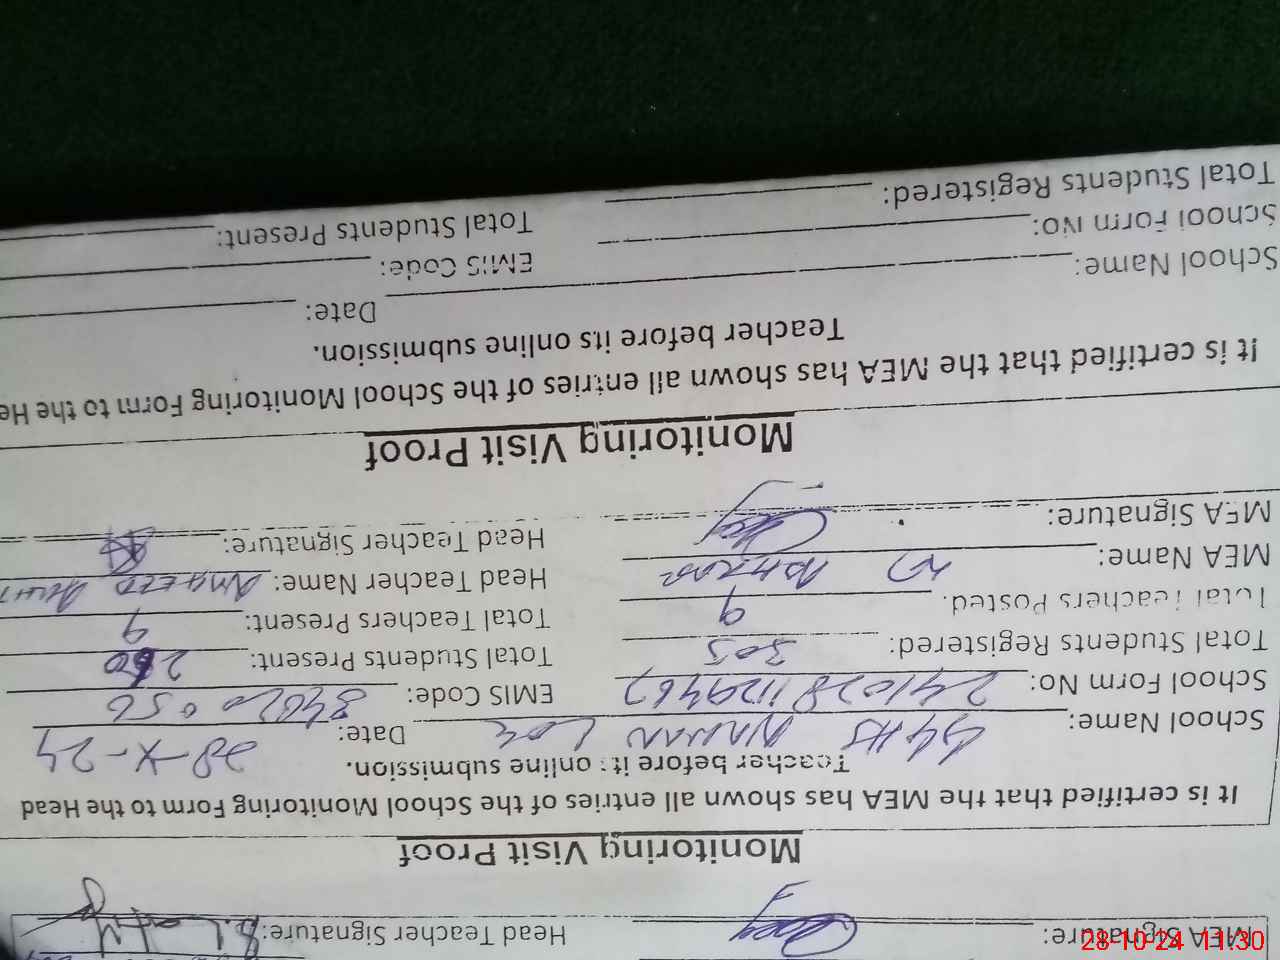 MEA Signature: Head Teacher Signature:
Monitoring Visit Proof
It is certified that the MEA has shown all entries of the School Monitoring Form to the Head
Teacher before its online submission.
School Name: GGHS Date: 28-X-24
School Form No: EMIS Code:
Total Students Registered: 305 Total Students Present:
Total Teachers Posted: 9 Total Teachers Present: 9
MEA Name: Head Teacher Name:
MEA Signature: Head Teacher Signature:
Monitoring Visit Proof
It is certified that the MEA has shown all entries of the School Monitoring Form to the He
Teacher before its online submission.
School Name: Date:
School Form No: EMIS Code:
Total Students Registered: Total Students Present:
28-10-24 11:30